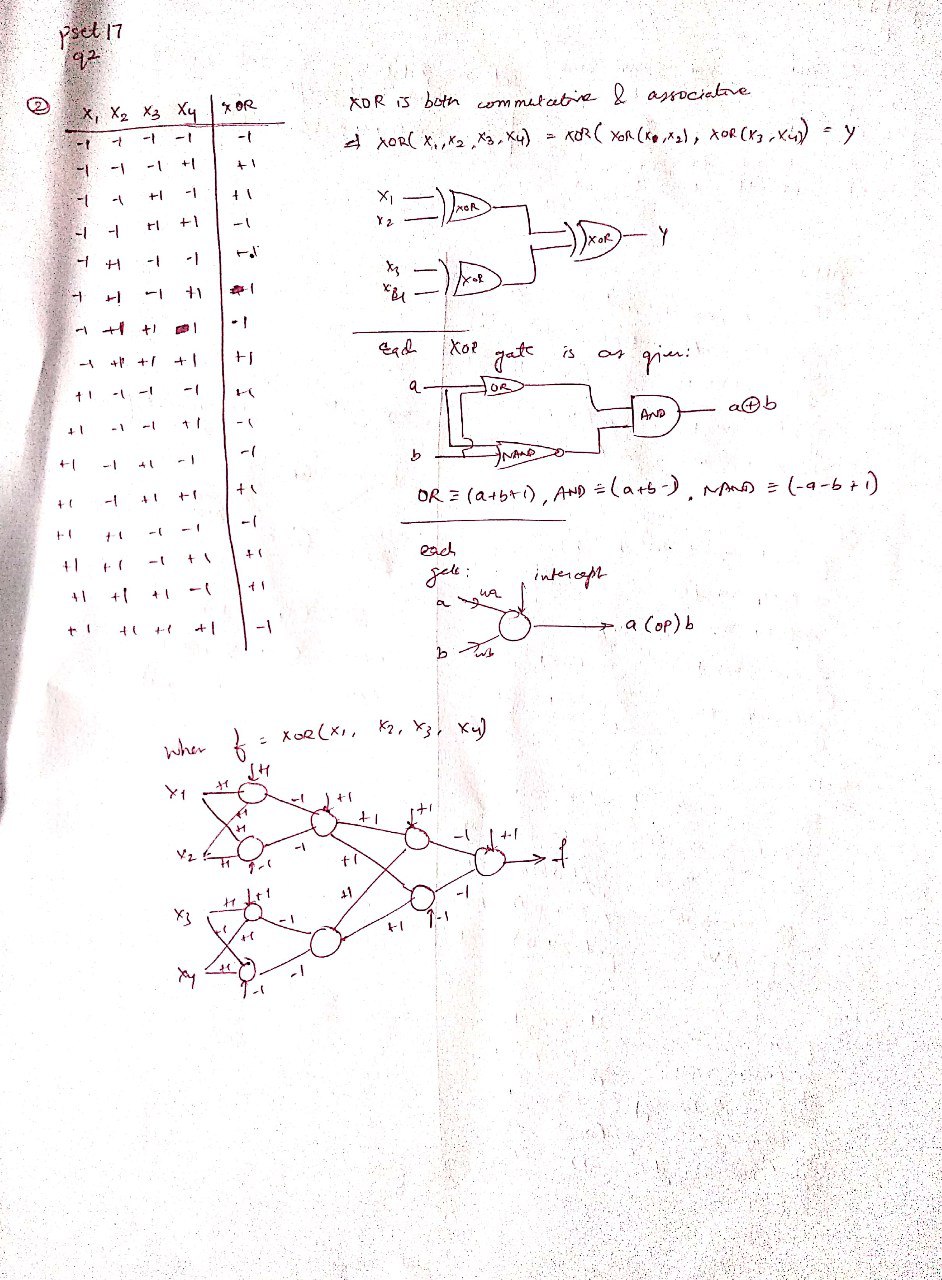 pset 17
q2
②
X1 X2 X3 X4 | XOR
-1 -1 -1 -1 | -1
-1 -1 -1 +1 | +1
-1 -1 +1 -1 | +1
-1 -1 +1 +1 | -1
-1 +1 -1 -1 | +1
-1 +1 -1 +1 | -1
-1 +1 +1 -1 | -1
-1 +1 +1 +1 | +1
+1 -1 -1 -1 | +1
+1 -1 -1 +1 | -1
+1 -1 +1 -1 | -1
+1 -1 +1 +1 | +1
+1 +1 -1 -1 | -1
+1 +1 -1 +1 | +1
+1 +1 +1 -1 | +1
+1 +1 +1 +1 | -1
XOR is both commutative & associative
⇒ XOR(X1, X2, X3, X4) = XOR( XOR(X1, X2), XOR(X3, X4)) = y
X1
XOR
X2
XOR
y
X3
XOR
X4
Each XOR gate is as given:
a
OR
AND
a⊕b
b
NAND
OR ≡ (a+b+1), AND ≡ (a+b-1), NAND ≡ (-a-b+1)
each
gate:
intercept
a
wa
a (op) b
b
wb
when f = XOR(X1, X2, X3, X4)
+1
X1 +1
-1 +1
+1
+1
+1
+1
-1 +1
X2 +1
-1
-1
+1
f
+1
X3 +1
-1
+1
-1
+1
+1
+1
-1
X4 +1
-1
-1